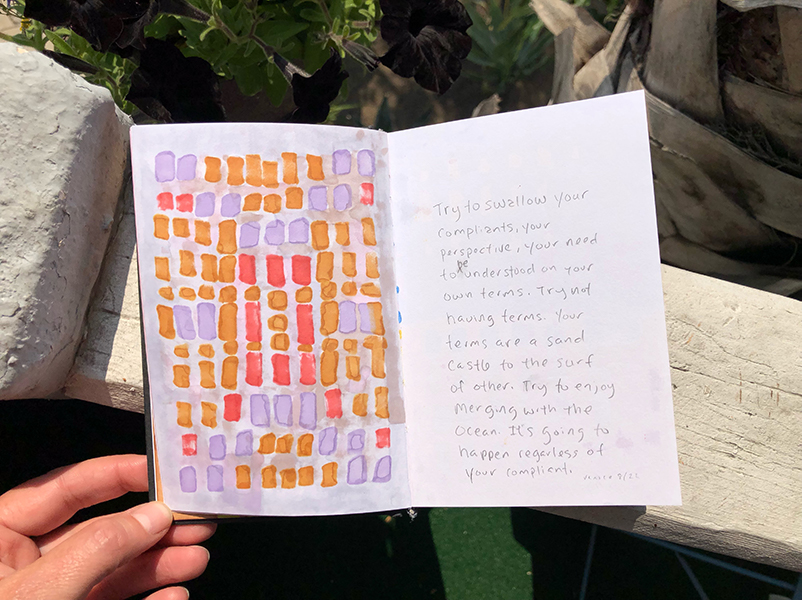 Try to swallow your
compliants, your
perspective, your need
to be understood on your
own terms. Try not
having terms. Your
terms are a sand
castle to the surf
of other. Try to enjoy
merging with the
ocean. It's going to
happen regardless of
your complient.